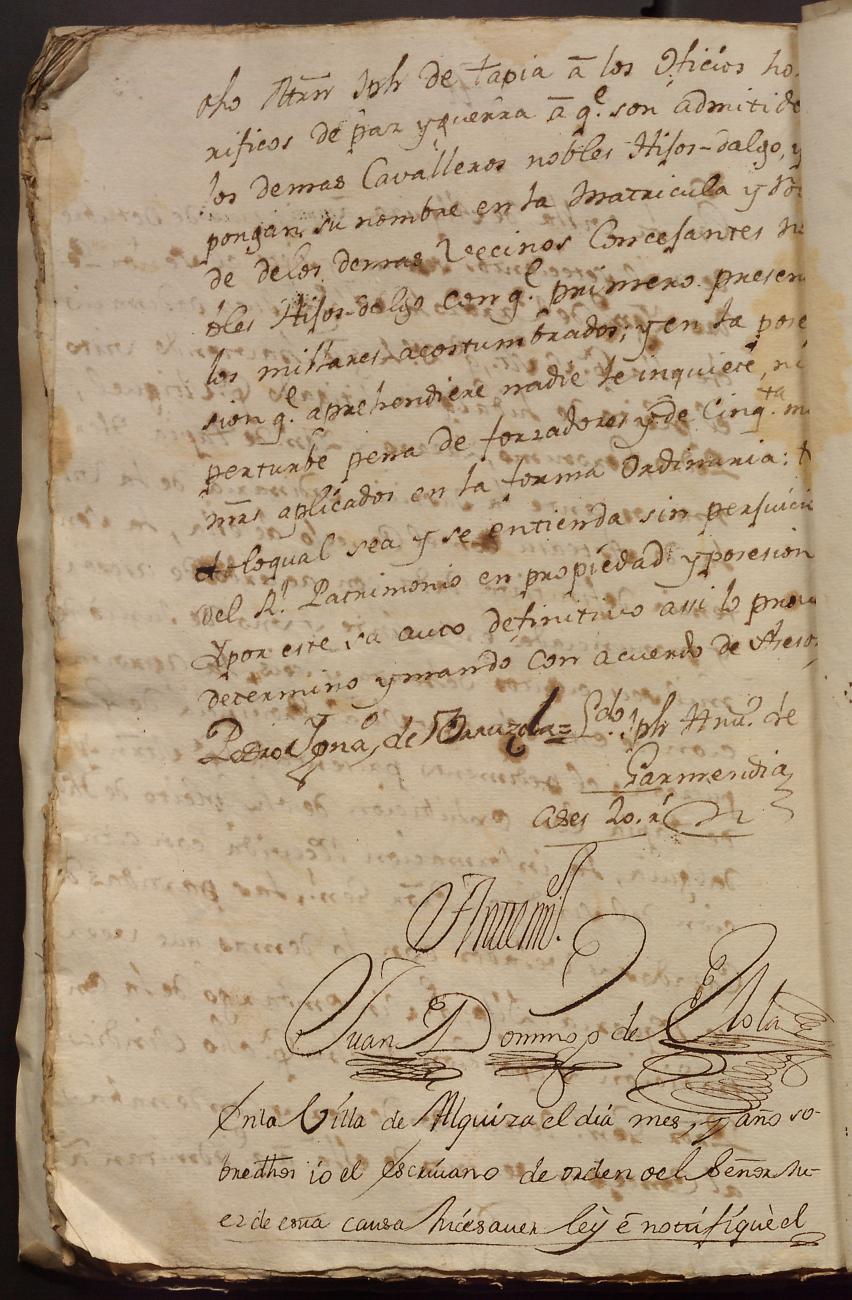 dho Mrñ Jph de tapia â los oficios ho
rificos de paz y guerra â q.e son admitido
los demas Cavalleros nobles Hijos-dalgo, y
pongan su nombre en la Matricula y
de de los demas Vecinos Concejantes n
bles Hijos-dalgo con q.e primero presen
los millares acostumbrados; y en la pose
sion q.e aprehendiere nadie le inquiete, ni
perturbe pena de forzadores y de Cinq.ta m
mrs aplicados en la forma Ordinaria: t
lo qual sea y se entienda sin perjuicio
del R.l Patrimonio en propiedad y posesion
Y por este su auto definitivo assi lo prov
determino y mandó con acuerdo de Aseso
Pedro Ygna.o de = Ldo. Jph Anu.o de
Garmendia
Ante mi
Juan Domingo de
En la Villa de Alquiza el dia mes, y año so-
bredhos io el escriuano de orden del Señor Ju-
ez de esta causa hice sauer leÿ é notifiqùe el